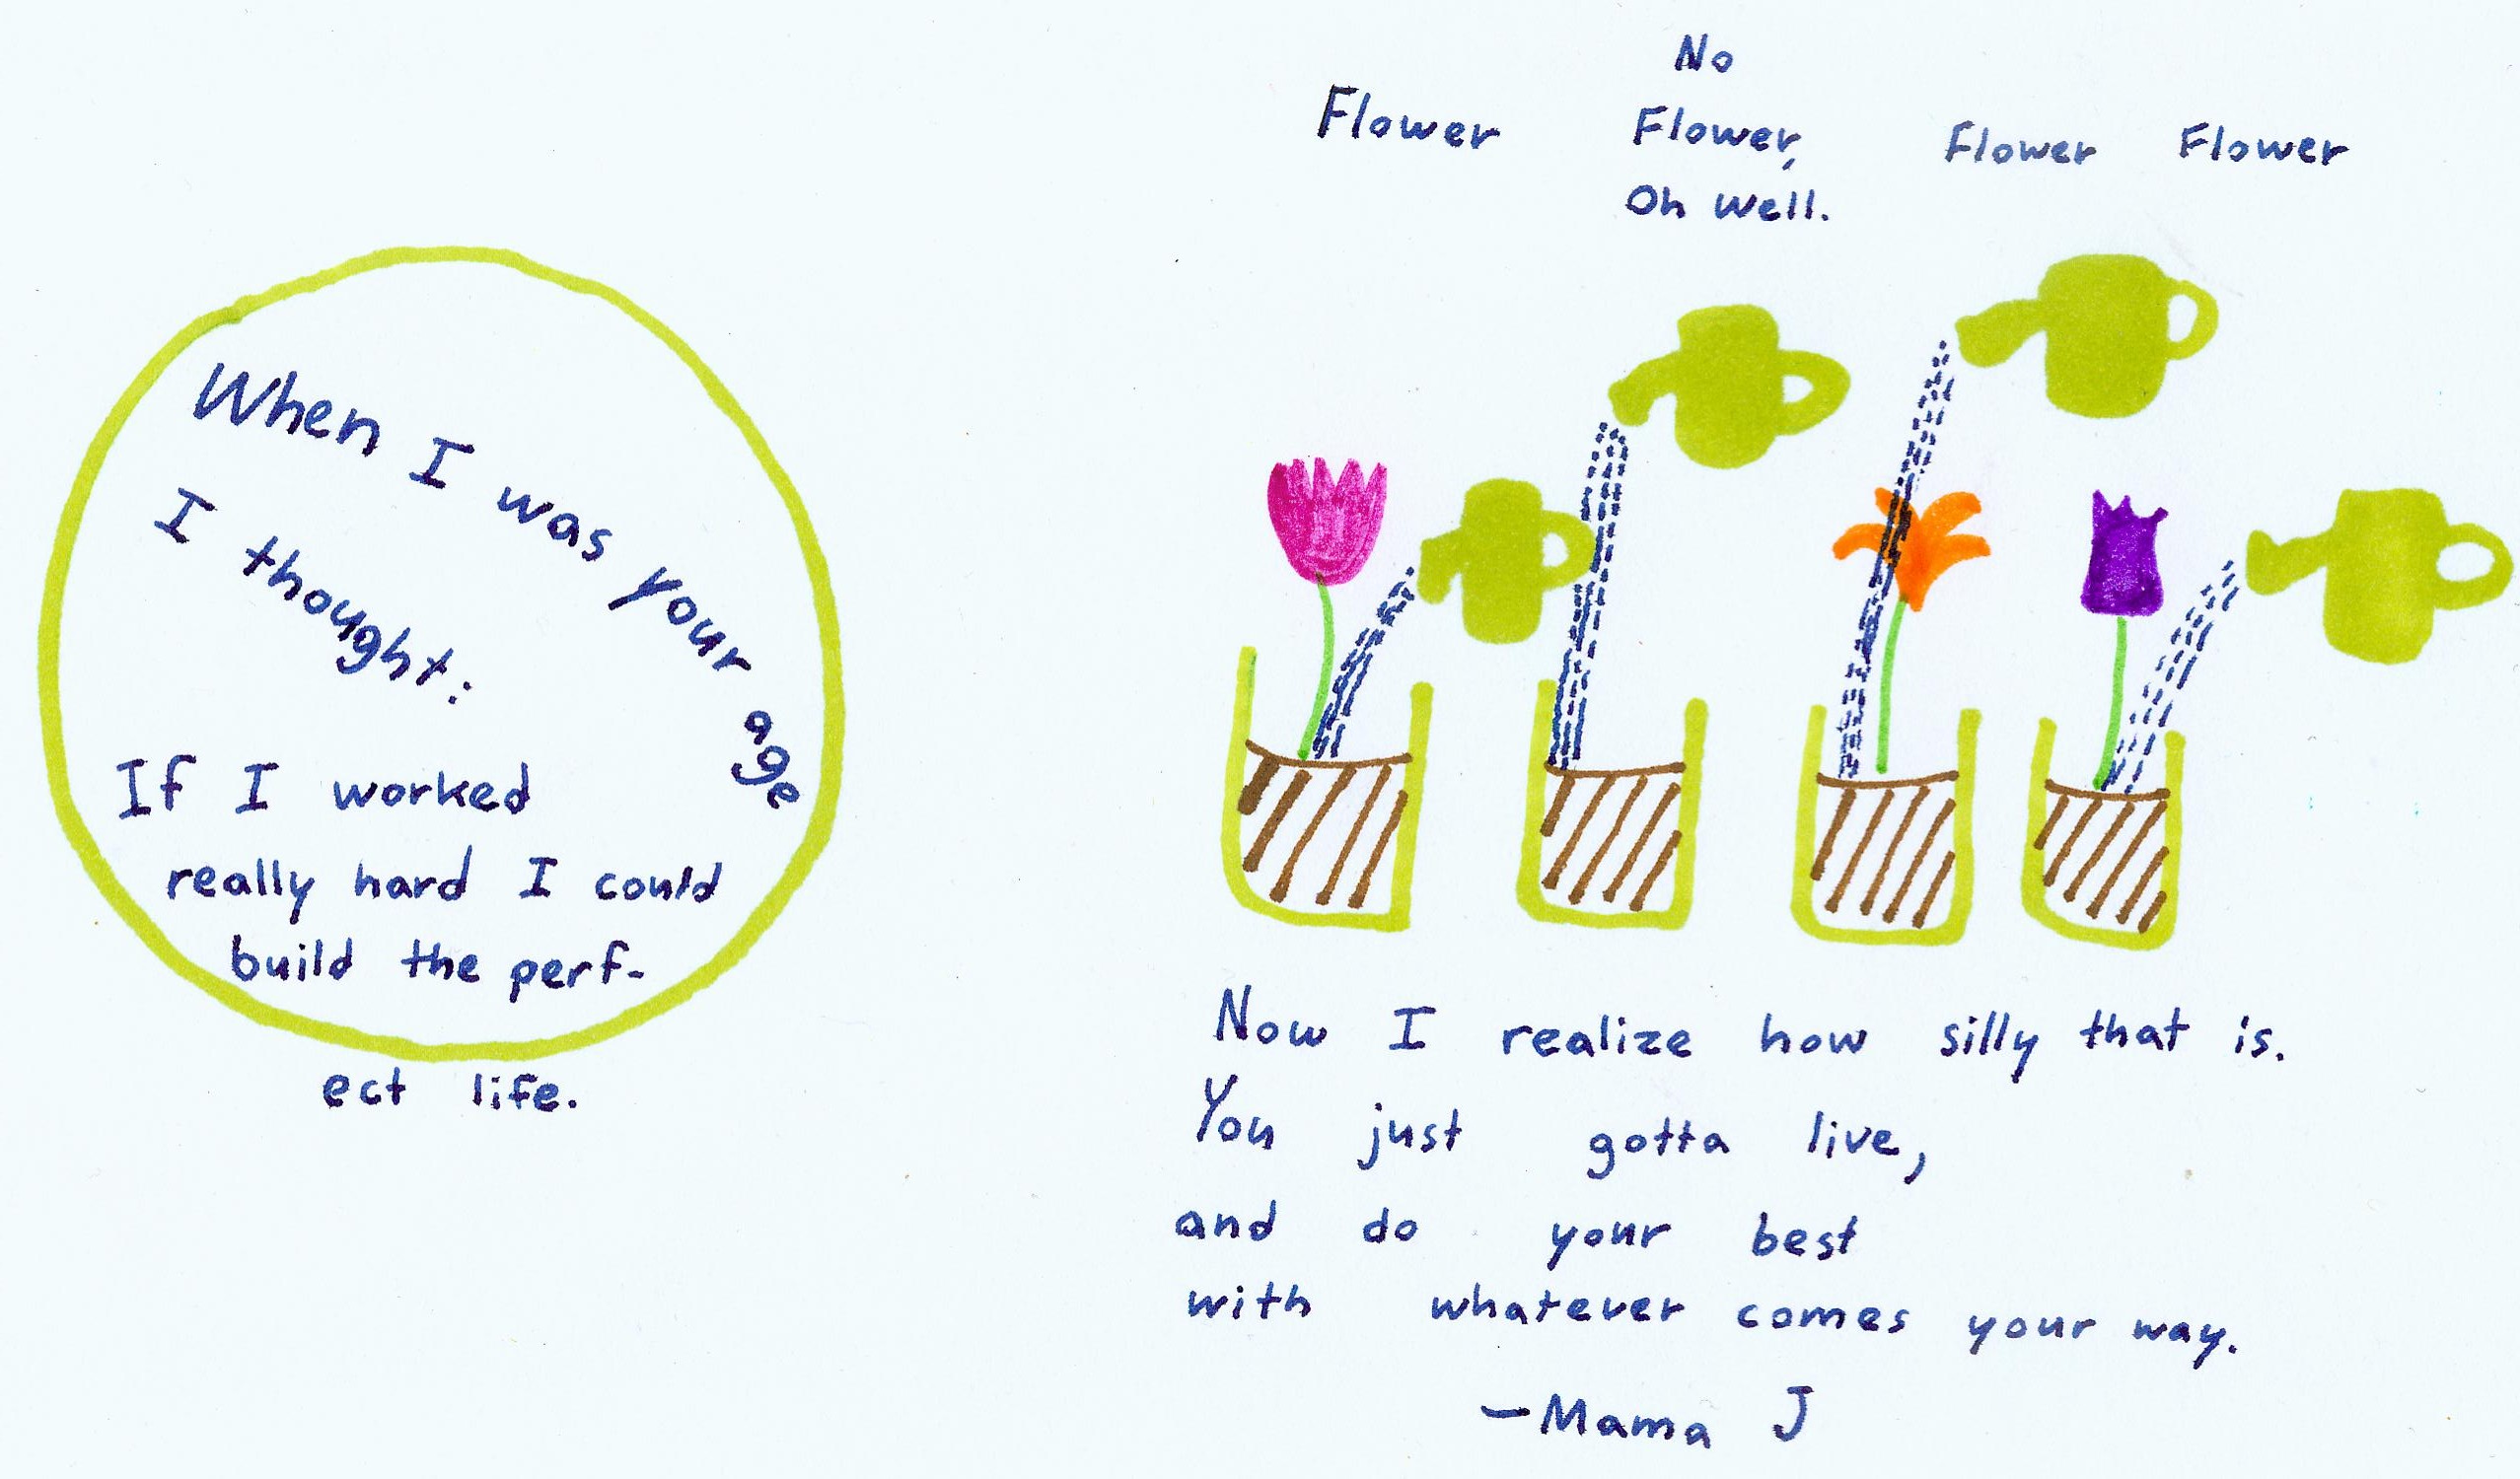 When I was your age
I thought:
If I worked
really hard I could
build the perf-
ect life.
No
Flower Flower, Flower Flower
Oh well.
Now I realize how silly that is.
You just gotta live,
and do your best
with whatever comes your way.
-Mama J